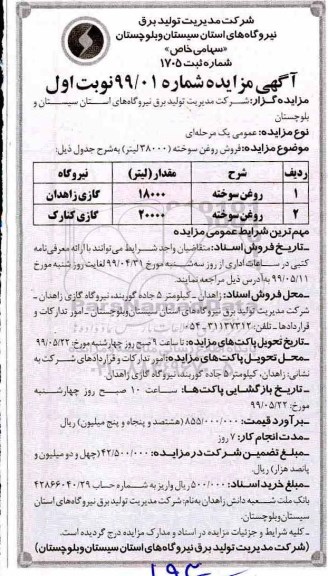 شرکت مدیریت تولید برق
نیروگاه‌های استان سیستان‌وبلوچستان
«سهامی خاص»
شماره ثبت ۱۷۰۵
آگهی مزایده شماره ۹۹/۰۱ نوبت اول
مزایده گزار: شرکت مدیریت تولید برق نیروگاه‌های استان سیستان و
بلوچستان
نوع مزایده: عمومی یک مرحله‌ای
موضوع مزایده: فروش روغن سوخته (۳۸۰۰۰ لیتر) به‌شرح جدول ذیل:
ردیف شرح مقدار (لیتر) نیروگاه
۱ روغن سوخته ۱۸۰۰۰ گازی زاهدان
۲ روغن سوخته ۲۰۰۰۰ گازی کنارک
مهم‌ترین شرایط عمومی مزایده
ـ تاریخ فروش اسناد: متقاضیان واجد شرایط می‌توانند با ارائه معرفی‌نامه
کتبی در ساعات اداری از روز سه‌شنبه مورخ ۹۹/۰۴/۳۱ لغایت روز شنبه مورخ
۹۹/۰۵/۱۱ به آدرس ذیل مراجعه نمایند.
ـ محل فروش اسناد: زاهدان ـ کیلومتر ۵ جاده گوربند، نیروگاه گازی زاهدان ـ
شرکت مدیریت تولید برق نیروگاه‌های استان سیستان‌وبلوچستان ـ امور تدارکات و
قراردادها ـ تلفن: ۳۱۱۳۷۳۱۲ـ۰۵۴
ـ تاریخ تحویل پاکت‌های مزایده: تا ساعت ۹ صبح روز چهارشنبه مورخ: ۹۹/۰۵/۲۲
ـ محل تحویل پاکت‌های مزایده: امور تدارکات و قراردادهای شرکت به
نشانی: زاهدان، کیلومتر ۵ جاده گوربند، نیروگاه گازی زاهدان.
ـ تاریخ بازگشایی پاکت‌ها: ساعت ۱۰ صبح روز چهارشنبه
مورخ: ۹۹/۰۵/۲۲
ـ برآورد قیمت: ۸۵۵/۰۰۰/۰۰۰ (هشتصد و پنجاه و پنج میلیون) ریال
ـ مدت انجام کار: ۷ روز
ـ مبلغ تضمین شرکت در مزایده: ۴۲/۵۰۰/۰۰۰ (چهل و دو میلیون و
پانصد هزار) ریال.
ـ مبلغ خرید اسناد: ۵۰۰/۰۰۰ ریال واریز به شماره حساب ۴۲۸۶۶۰۴۰/۲۹
بانک ملت شعبه دانش زاهدان به‌نام: شرکت مدیریت تولید برق نیروگاه‌های استان
سیستان‌وبلوچستان.
ـ کلیه شرایط و جزئیات مزایده در اسناد و مدارک مزایده درج گردیده است.
(شرکت مدیریت تولید برق نیروگاه‌های استان سیستان‌وبلوچستان)